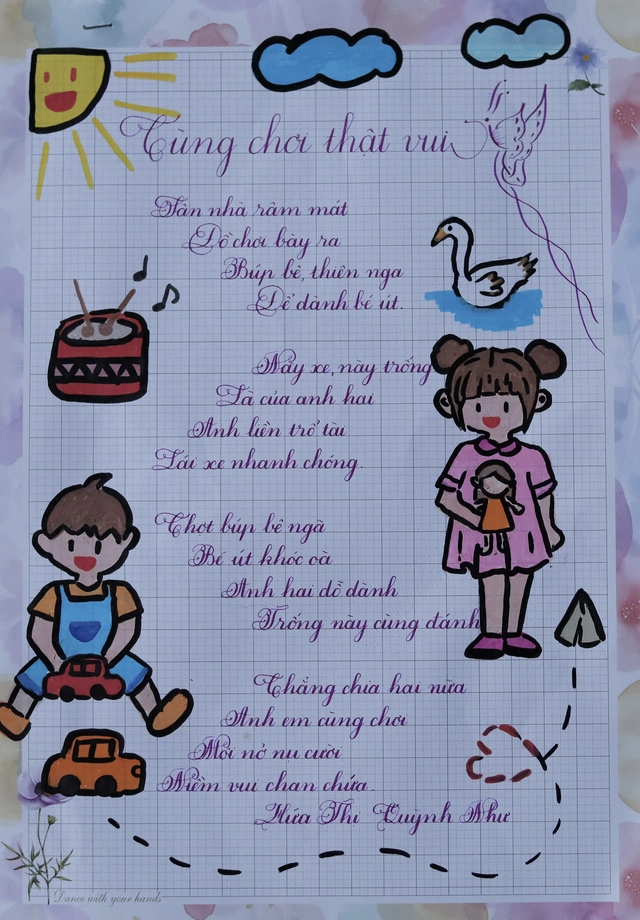 Cùng chơi thật vui
Sân nhà râm mát
Đồ chơi bày ra
Búp bê, thiên nga
Để dành bé út.
Này xe, này trống
Là của anh hai
Anh liền trổ tài
Lái xe nhanh chóng.
Chợt búp bê ngã
Bé út khóc oà
Anh hai dỗ dành
Trống này cùng đánh
Chẳng chia hai nữa
Anh em cùng chơi
Môi nở nụ cười
Niềm vui chan chứa.
Hứa Thị Quỳnh Như
Dance with your hands